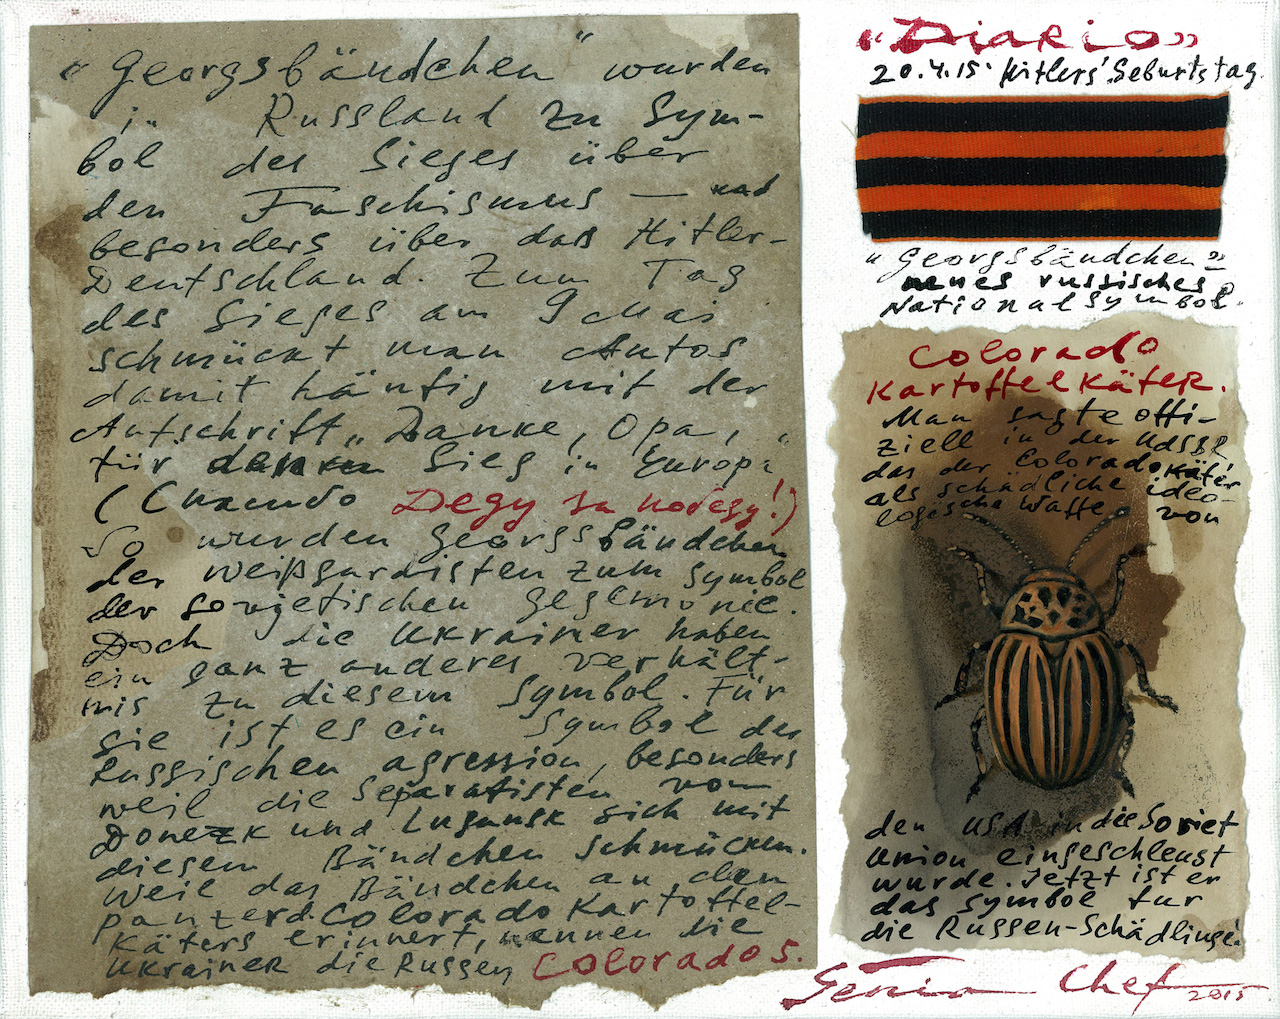 « Georgsbändchen " wurden
in Russland zu Sym-
bol des Sieges über
den Faschismus — und
besonders über das Hitler-
Deutschland. Zum Tag
des Sieges am 9 Mai
schmückt man Autos
damit häufig mit der
Aufschrift „Danke, Opa,
für Sieg in Europa"
(Спасибо Деду за победу!)
So wurden Georgsbändchen
der Weißgardisten zum Symbol
der sovjetischen Gegemonie.
Doch die Ukrainer haben
ein ganz anderes Verhält-
nis zu diesem Symbol. Für
sie ist es ein Symbol der
Russischen agression, besonders
weil die Separatisten von
Donezk und Lugansk sich mit
diesem Bändchen schmücken.
Weil das Bändchen an den
panzerd. Colorado Kartoffel-
Käfers erinnert, nennen die
Ukrainer die Russen Colorados.
«Diario»
20.4.15. Hitlers' Geburtstag.
«Georgsbändchen»
neues russisches
Nationalsymbol.
Colorado
Kartoffelkäfer.
Man sagte offi-
ziell in der UdSSR
das der Coloradokäfer
als schädliche ideo-
logische Waffe von
den USA in die Soviet
Union eingeschleust
wurde. Jetzt ist er
das Symbol für
die Russen-Schädlinge.
Genia Chef 2015